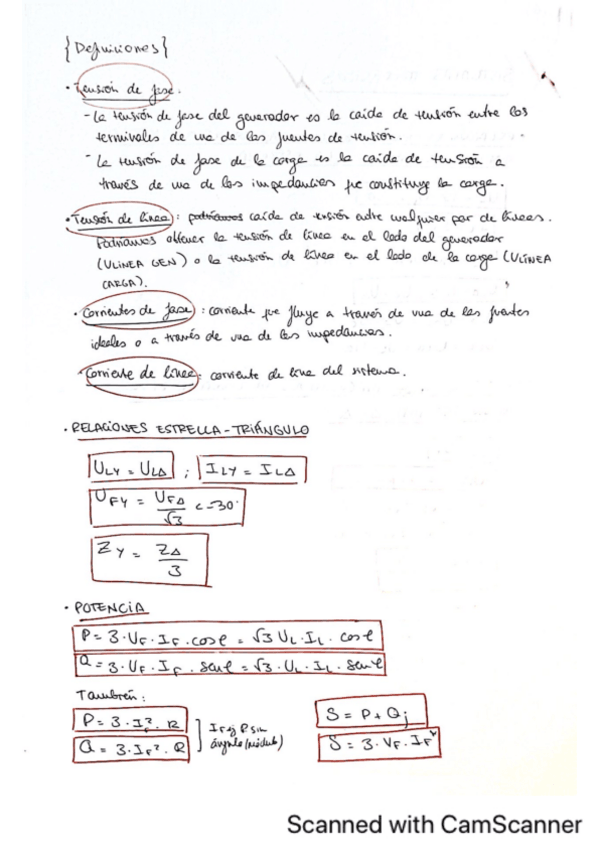 {Definiciones}
· Tensión de fase.
- La tensión de fase del generador es la caída de tensión entre los
terminales de una de las fuentes de tensión.
- La tensión de fase de la carga es la caída de tensión a
través de una de las impedancias que constituye la carga.
· Tensión de línea: caída de tensión entre cualquier par de líneas.
Podríamos obtener la tensión de línea en el lado del generador
(ULINEA GEN) o la tensión de línea en el lado de la carga (ULINEA
CARGA).
· Corrientes de fase: corriente que fluye a través de una de las fuentes
ideales o a través de una de las impedancias.
· Corriente de línea: corriente de línea del sistema.
· RELACIONES ESTRELLA-TRIÁNGULO
ULY = ULΔ ; ILY = ILΔ
UFY = UFΔ/√3 <-30°
ZY = ZΔ/3
· POTENCIA
P = 3·UF·IF·cosφ = √3 UL·IL·cosφ
Q = 3·UF·IF·senφ = √3·UL·IL·senφ
También:
P = 3·IF²·R
Q = 3·IF²·Q
sin
ángulo (módulo)
S = P + Qj
S = 3·VF·IF*
Scanned with CamScanner